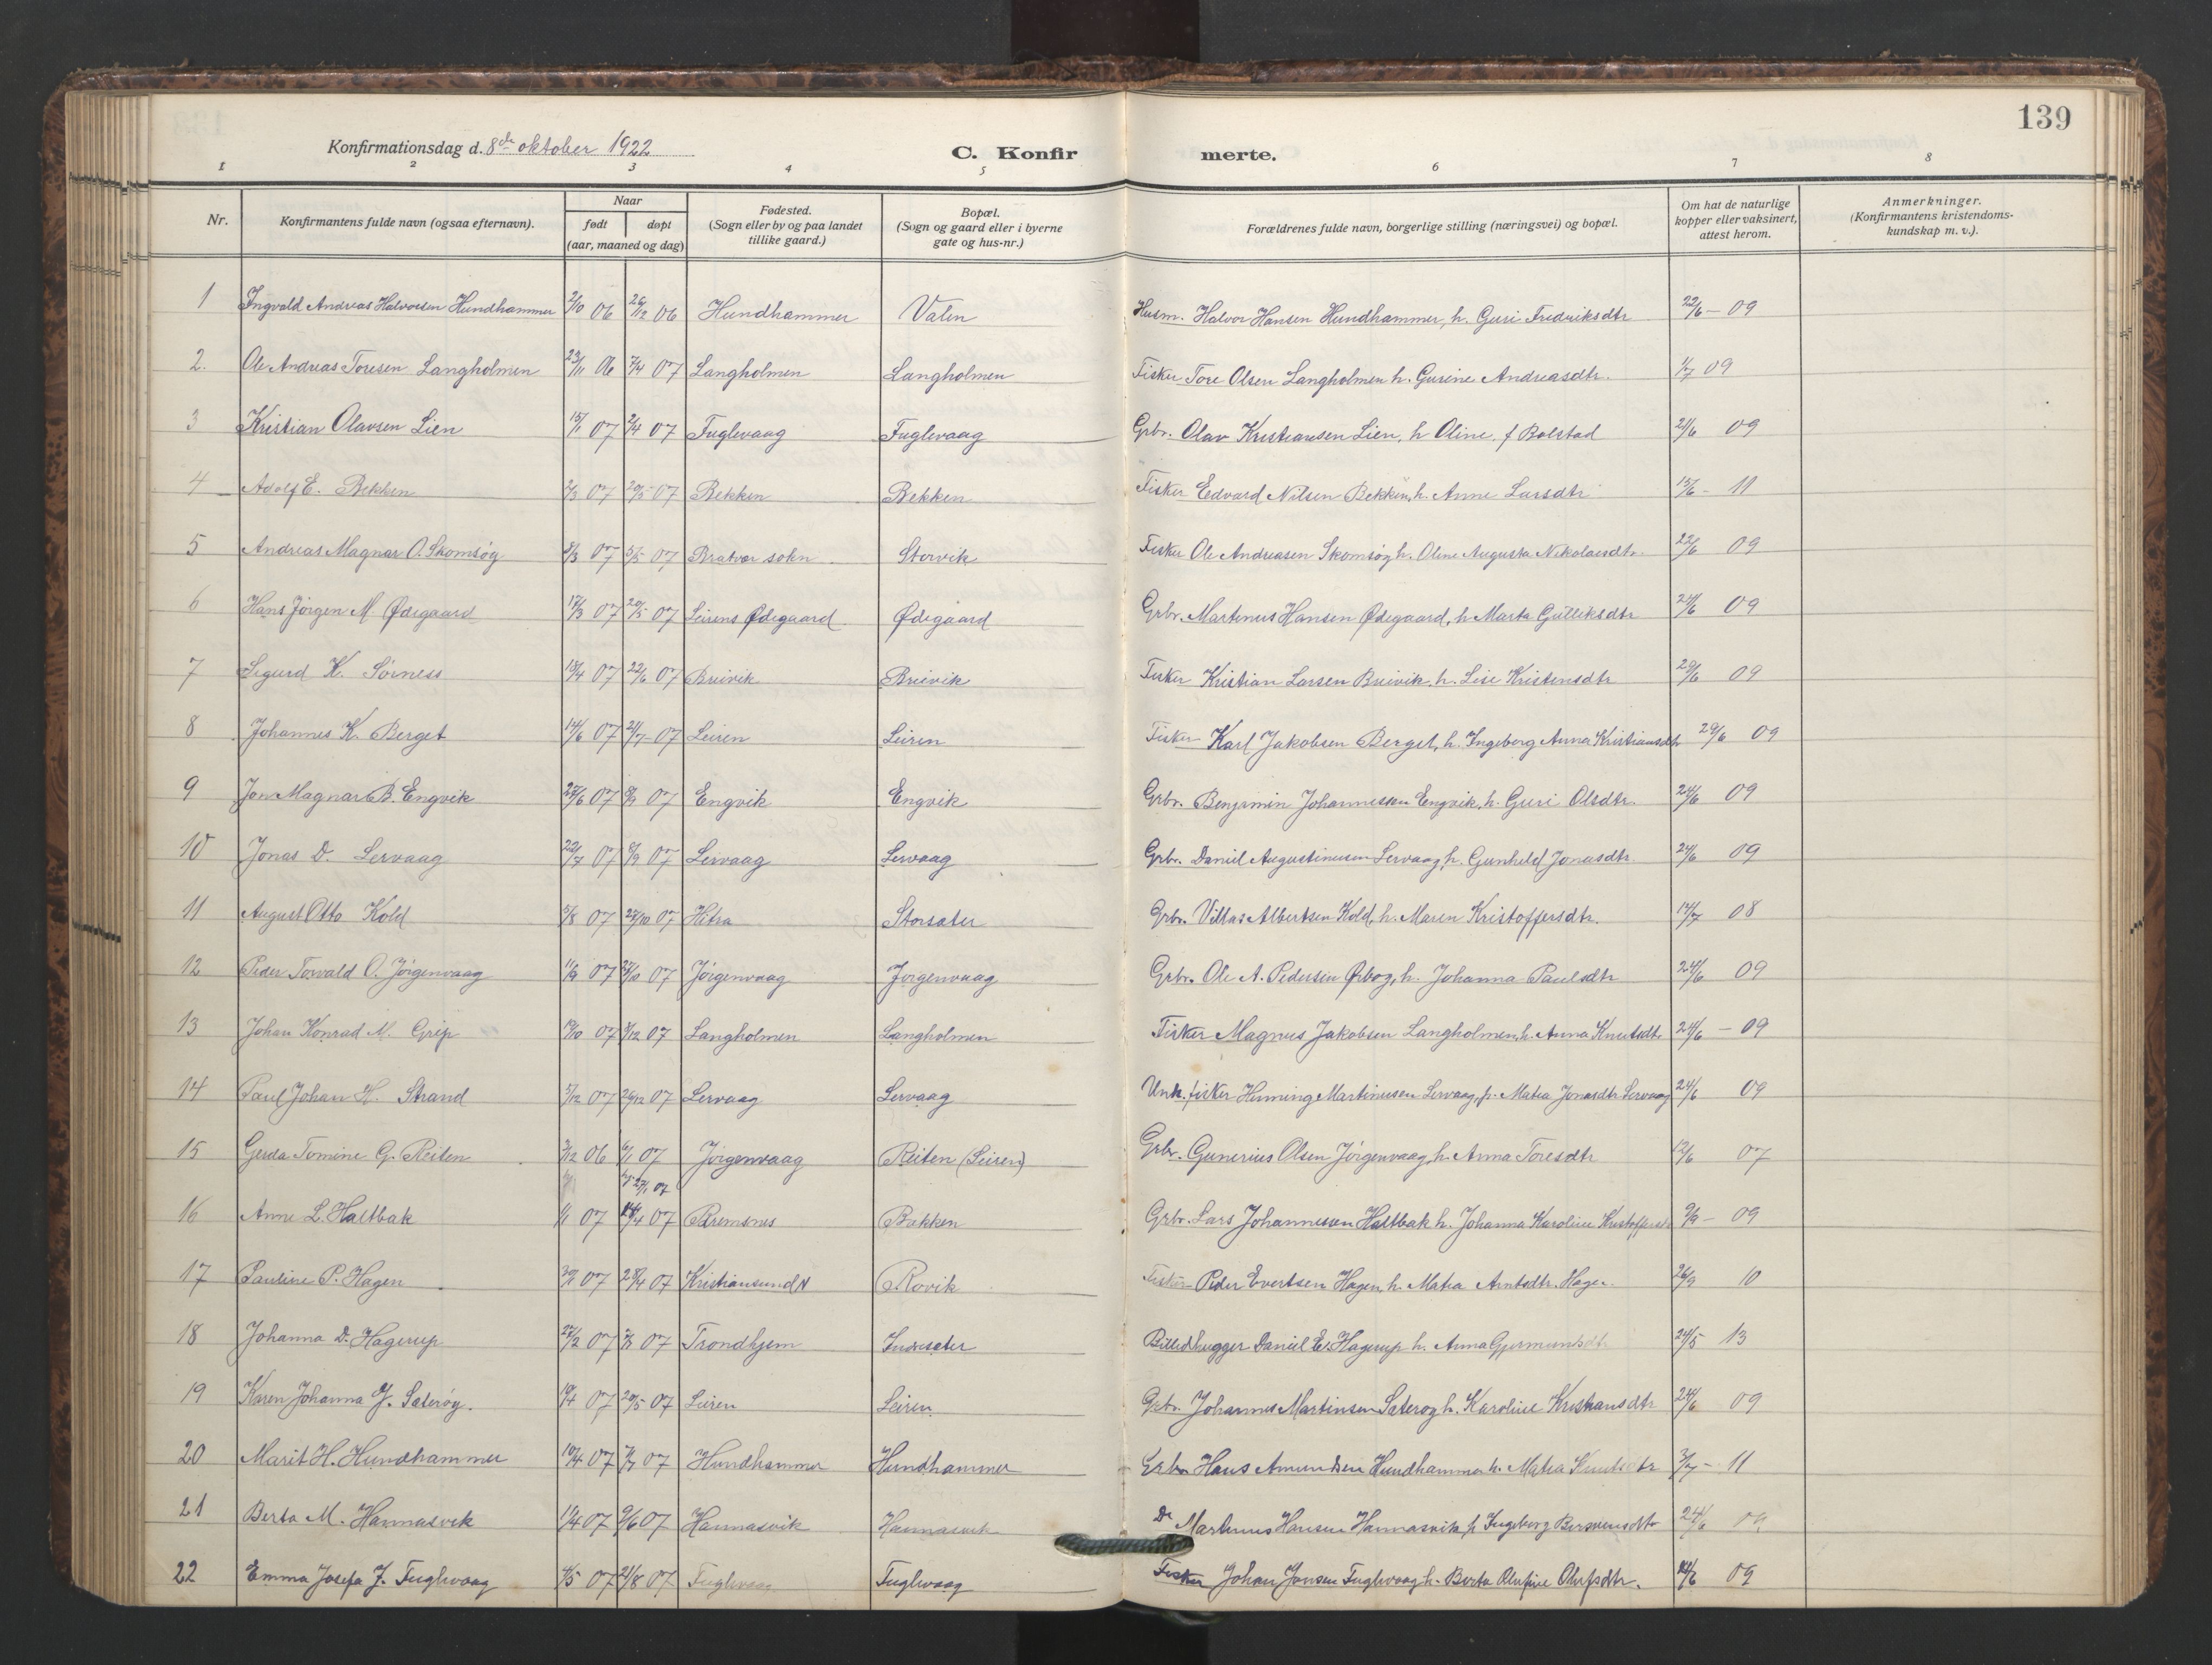 139
Konfirmationsdag d. 8de oktober 1922 C. Konfirmerte.
1 2 3 4 5 6 7 8
Nr. Konfirmantens fulde navn (ogsaa efternavn). Naar født døpt (aar, maaned og dag) Fødested. (Sogn eller by og paa landet tillike gaard.) Bopæl. (Sogn og gaard eller i byerne gate og hus-nr.) Forældrenes fulde navn, borgerlige stilling (næringsvei) og bopæl. Om hat de naturlige kopper eller vaksinert, attest herom. Anmerkninger. (Konfirmantens kristendomskundskap m. v.).
1 Ingvald Andreas Halvorsen Hundhammer 2/10 06 26/12 06 Hundhammer Valen Husm. Halvor Hansen Hundhammer, h. Guri Fredriksdtr 22/6 - 09
2. Ole Andreas Toresen Langholmen 23/11 06 7/4 07 Langholmen Langholmen Fisker Tore Olsen Langholmen h. Gurine Andreasdtr. 1/7 09
3 Kristian Olavsen Lien 15/1 07 2/4 07 Fuglevaag Fuglevaag Grbr. Olav Kristiansen Lien, h Oline f Bolstad 21/6 09
4 Adolf E. Bekken 2/3 07 20/5 07 Bekken Bekken Fisker Edvard Nilsen Bekken, h. Anne Larsdtr 15/6 - 11
5 Andreas Magnar O. Skomsøy 8/3 07 5/5 07 Bratvær sokn Storvik Fisker Ole Andreasen Skomsøy h. Oline Augusta Nikolaisdtr. 22/6 09
6 Hans Jörgen M. Ødegaard 17/3 07 20/5 07 Leirens Ødegaard Ødegaard Grbr. Martinus Hansen Ødegaard, h Marta Gulliksdtr 24/6 09
7 Sigurd K. Sörness 18/4 07 22/6 07 Breivik Breivik Fisker Kristian Larsen Breivik, h. Lise Kristensdtr 29/6 09
8 Johannes K. Berget 14/6 07 21/7 07 Leiren Leiren Fisker Karl Jakobsen Berget, h. Ingeborg Anna Kristiansdtr 29/6 09
9 Jon Magnar B. Engvik 27/6 07 8/9 07 Engvik Engvik Grbr. Benjamin Johannessen Engvik, h. Guri Olsdtr. 24/6 09
10 Jonas D. Lervaag 22/7 07 8/9 07 Lervaag Lervaag Grbr. Daniel Augustinusen Lervaag h. Gunhild Jonasdtr. 24/6 09
11 August Otto Kold 5/8 07 27/10 07 Hitra Storsæter Grbr. Villas Albertsen Kold, h. Maren Kristoffersdtr. 14/7 08
12 Peder Torvald O. Jörgenvaag 11/9 07 27/10 07 Jörgenvaag Jörgenvaag Grbr. Ole A. Pedersen h. Johanna Paulsdtr 24/6 09
13 Johan Konrad M. Grip 19/10 07 1/12 07 Langholmen Langholmen Fisker Magnus Jakobsen Langholmen, h. Anna Knutsdtr. 24/6 - 09
14 Paul Johan H. Strand 5/12 07 26/12 07 Lervaag Lervaag Unk. fisker Henning Martinusen Lervaag, p. Matea Jonasdtr. Lervaag 24/6 09
15 Gerda Tomine G. Reiten 3/12 06 6/1 07 Jörgenvaag Reiten (Leiren) Grbr. Gunerius Olsen Jörgenvaag h. Anna Toresdtr 12/6 07
27/1 07
16 Anne L. Haltbak 1/1 07 14/4 07 Bremsnes Bakken Grbr. Lars Johannessen Haltbak h. Johanna Karoline Kristoffersd 9/9 - 09
17 Pauline P. Hagen 30/1 07 28/4 07 Kristiansund N Rovik Fisker Peder Evertsen Hagen h. Matea Arntsdtr. Hagen 26/9 10
18 Johanna D. Hagerup 27/2 07 07 Trondhjem Indresæter Billedhugger Daniel E. Hagerup h. Anna Gjermundsdt. 24/5 13
19 Karen Johanna J. Sæterøy. 19/4 07 20/5 07 Leiren Leiren Grbr. Johannes Martinsen Sæterøy h. Karoline Kristiansdtr 24/6 09
20 Marit H. Hundhammer 10/4 07 7/7 07 Hundhammer Hundhammer Grbr Hans Amundsen Hundhammer h. Matea Knutsdtr 3/7 - 11
21 Berta M. Hannasvik 11/4 07 9/6 07 Hannasvik Hannasvik Do Martinus Hansen Hannasvik h Ingeborg 24/6 09
22 Emma Josefa J. Fuglevaag 4/5 07 21/8 07 Fuglevaag Fuglevaag Fisker Johan Jansen Fuglevaag h. Berta Olufine Olufsdtr. 24/6 09